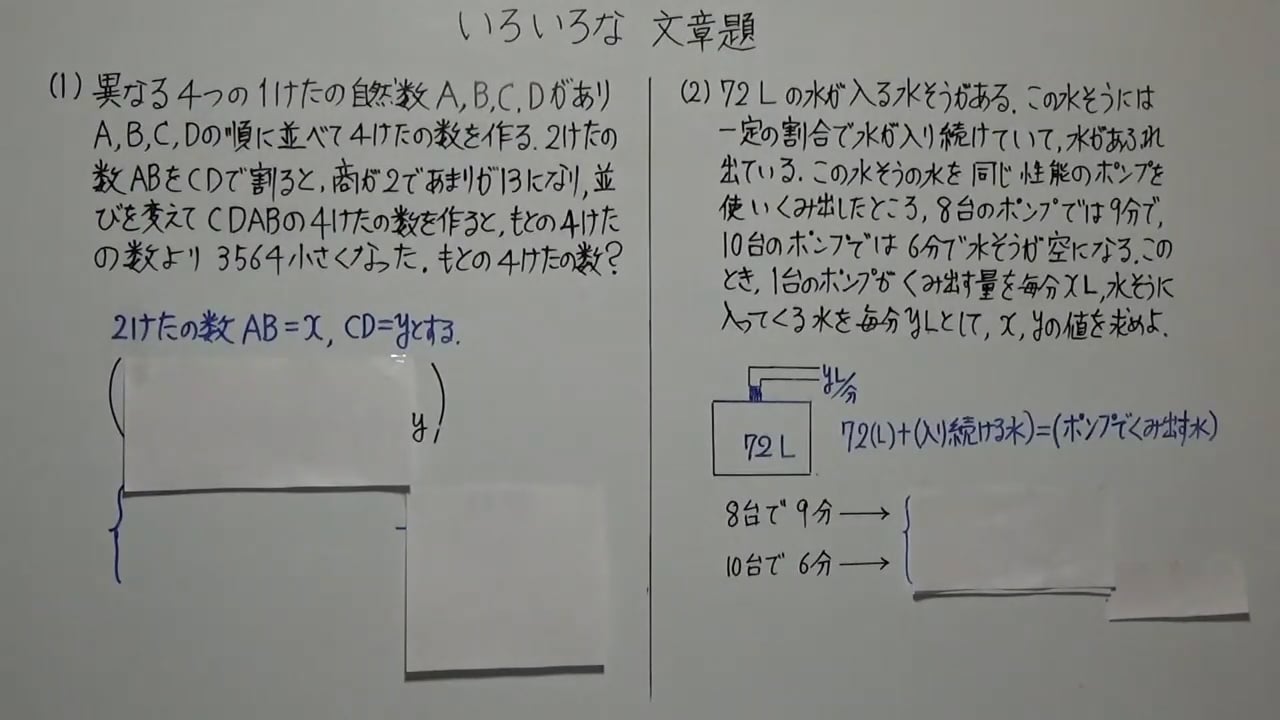 いろいろな 文章題
(1) 異なる4つの1けたの自然数A,B,C,Dがあり
A,B,C,Dの順に並べて4けたの数を作る.2けたの
数ABをCDで割ると,商が2であまりが13になり,並
びを変えてCDABの4けたの数を作ると,もとの4けた
の数より 3564小さくなった.もとの4けたの数?
2けたの数 AB=x, CD=yとする.
( y )
{
(2) 72Lの水が入る水そうがある.この水そうには
一定の割合で水が入り続けていて,水があふれ
出ている.この水そうの水を同じ性能のポンプを
使いくみ出したところ,8台のポンプでは9分で,
10台のポンプでは6分で水そうが空になる.この
とき,1台のポンプがくみ出す量を毎分xL,水そうに
入ってくる水を毎分yLとして,x,yの値を求めよ.
yL/分
72L
72(L)+(入り続ける水)=(ポンプでくみ出す水)
8台で 9分 → {
10台で 6分 →